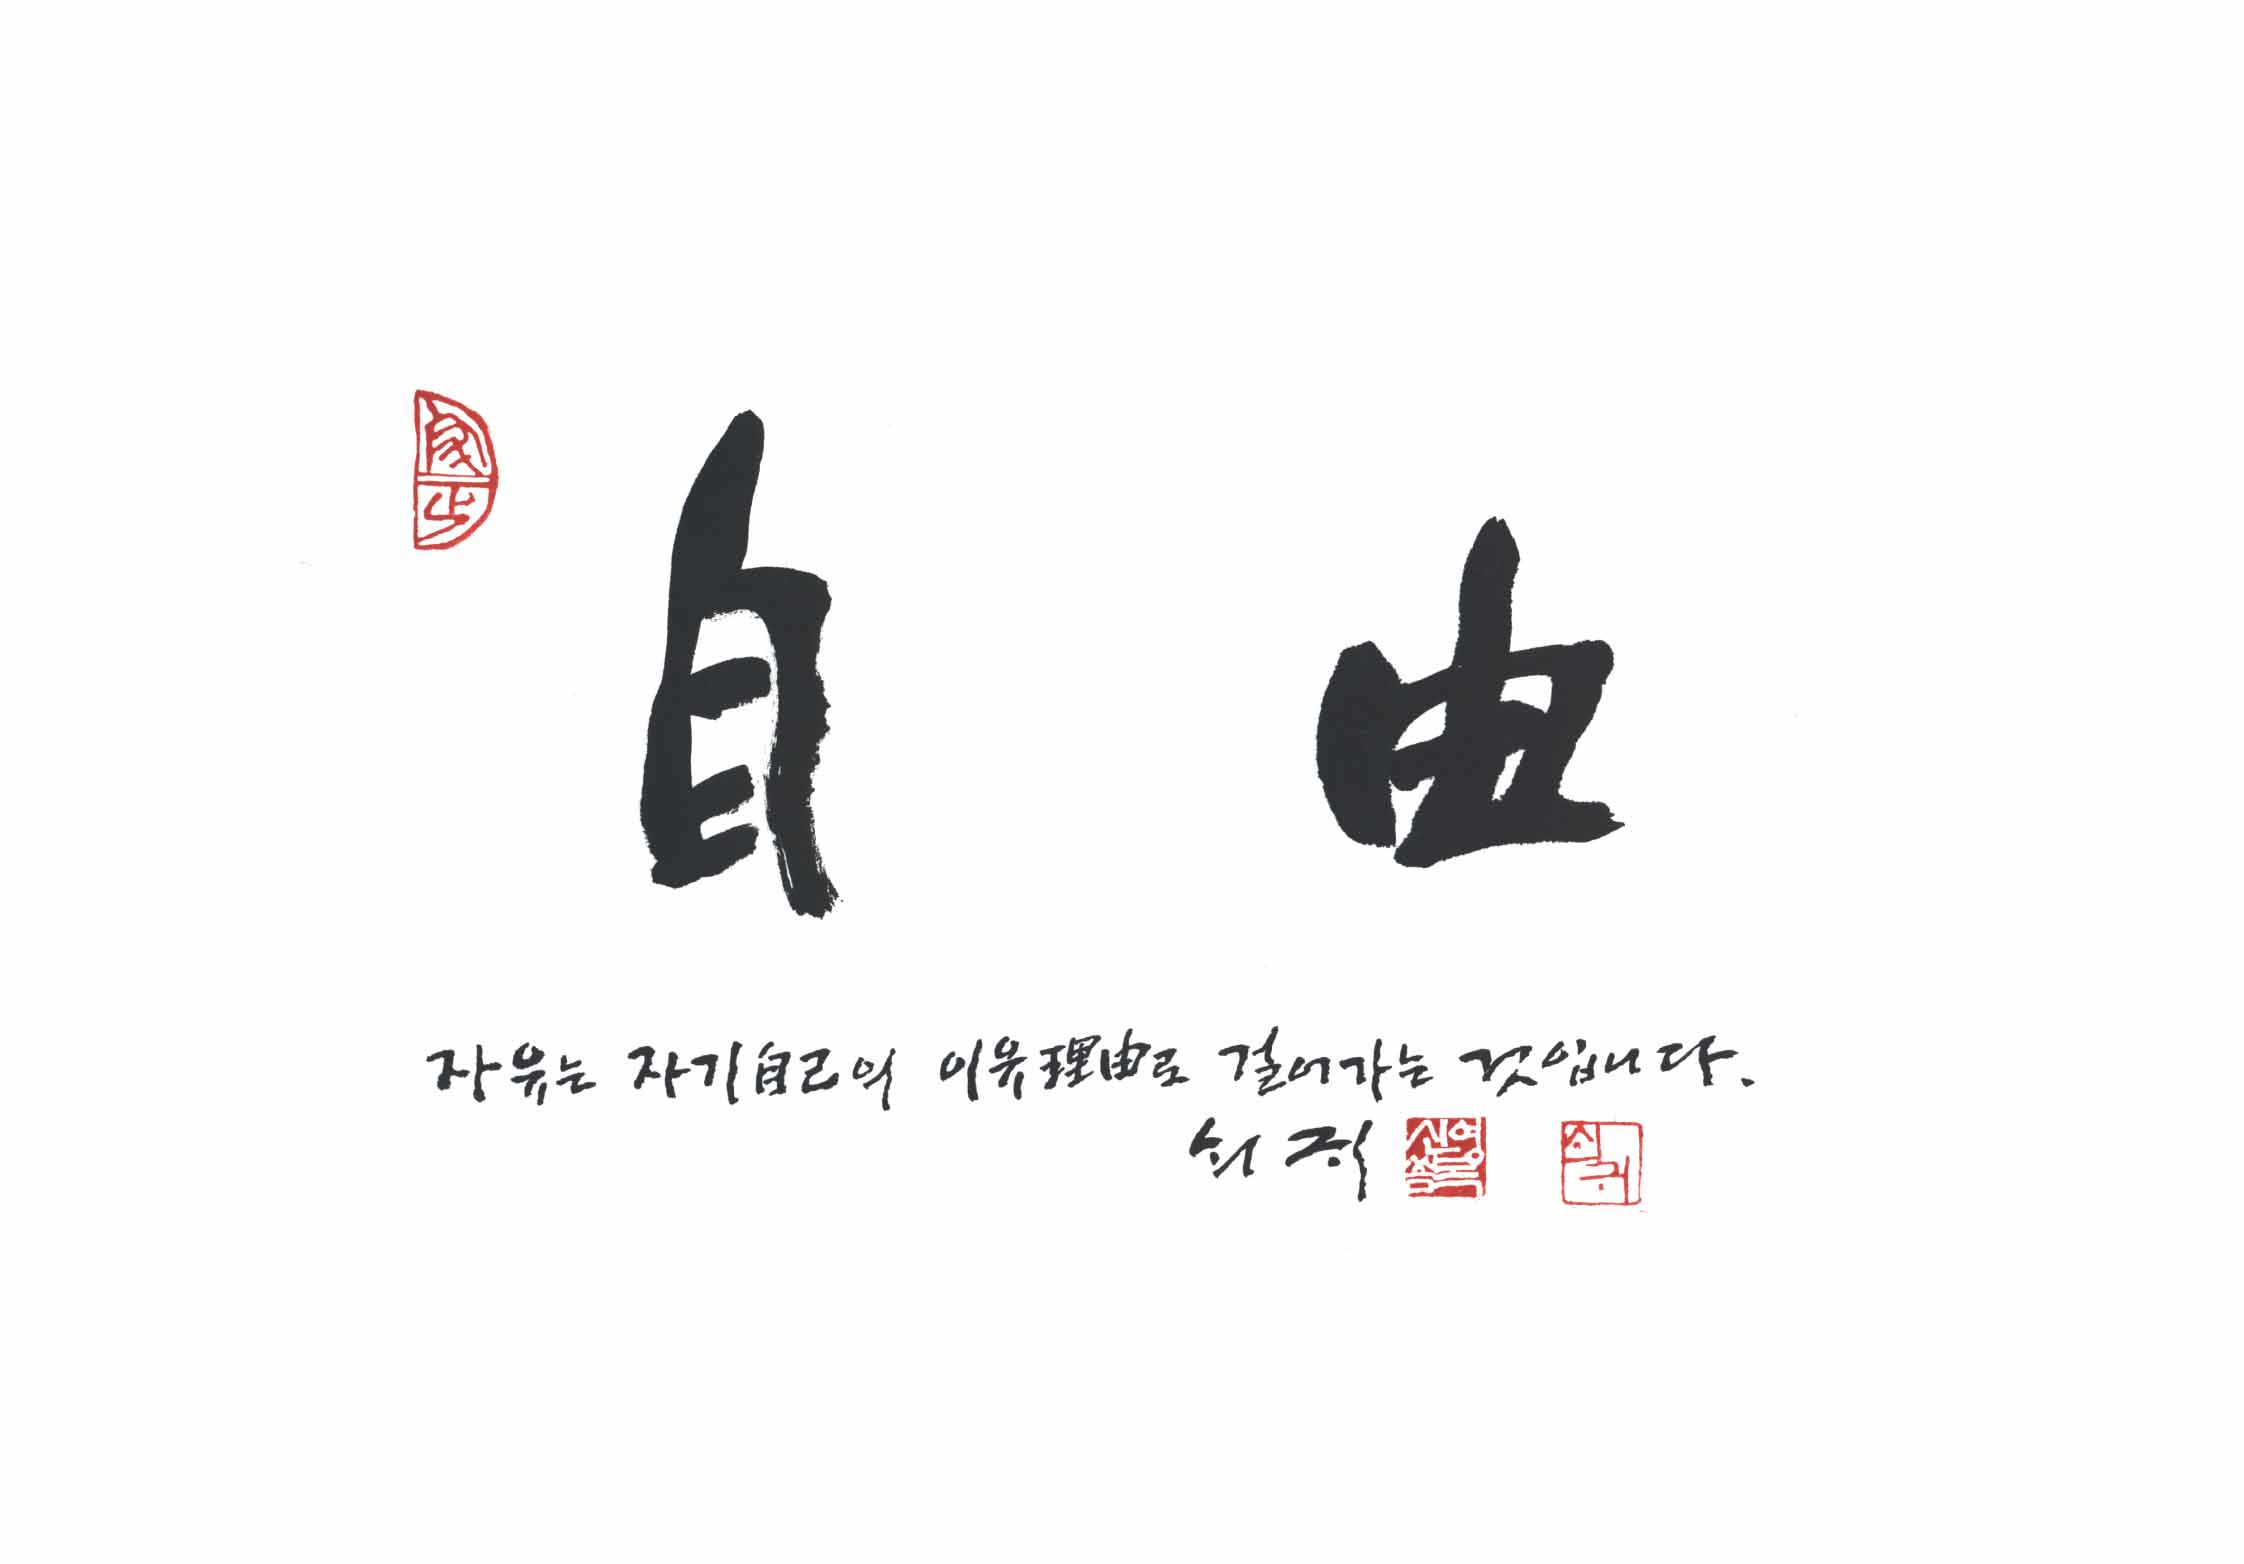 自由
자유는 자기自己의 이유理由로 걸어가는 것입니다.
쇠귀
신영복